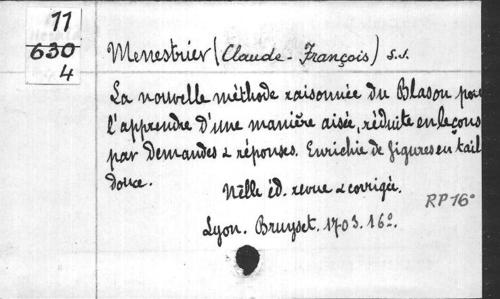 11
630
4
Menestrier (Claude-François) s.j.
La nouvelle méthode raisonnée du Blason pour
l'apprendre d'une manière aisée, réduite en leçons
par demandes & réponses. Enrichie de figures en tail
douce.
Nelle éd. revue & corrigée.
RP 16°
Lyon. Bruyset. 1703. 16°.